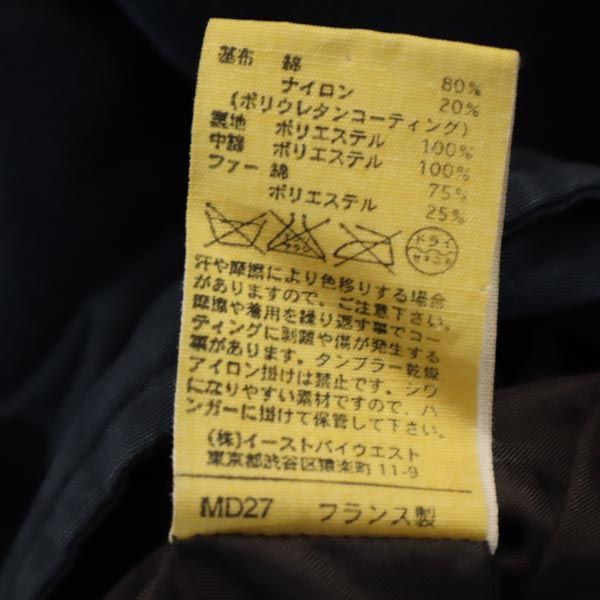 基布 綿 80%
ナイロン 20%
(ポリウレタンコーティング)
裏地 ポリエステル 100%
中綿 ポリエステル 100%
ファー 綿 75%
ポリエステル 25%
エンソ サラシ ドライ セキユ系
汗や摩擦により色移りする場合
がありますので、ご注意下さい。
摩擦や着用を繰り返す事でコー
ティングに剥離や傷が発生する
事があります。タンブラー乾燥
アイロン掛けは禁止です。シワ
になりやすい素材ですので、ハ
ンガーに掛けて保管して下さい。
(株)イーストバイウエスト
東京都渋谷区猿楽町 11-9
MD27 フランス製